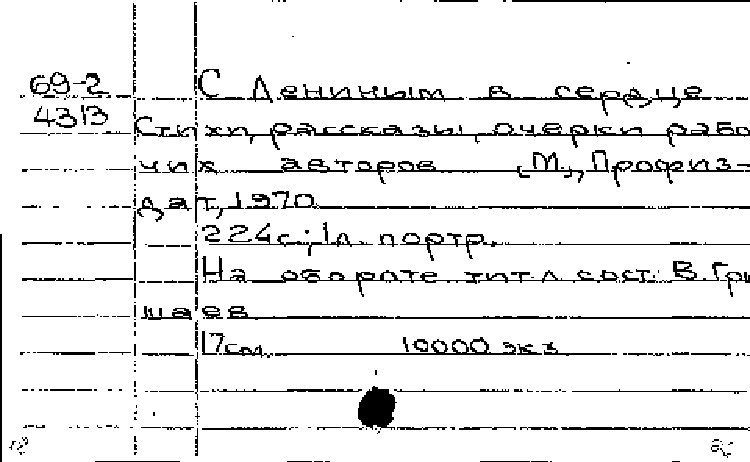 69-2 С Лениным в сердце
4313 Стихи, рассказы, очерки рабо
чих авторов [М.], Профиз-
дат, 1970
224с; 1л. портр.
На обороте тит. л. сост: В. Гри
шаев
17см. 10000 экз